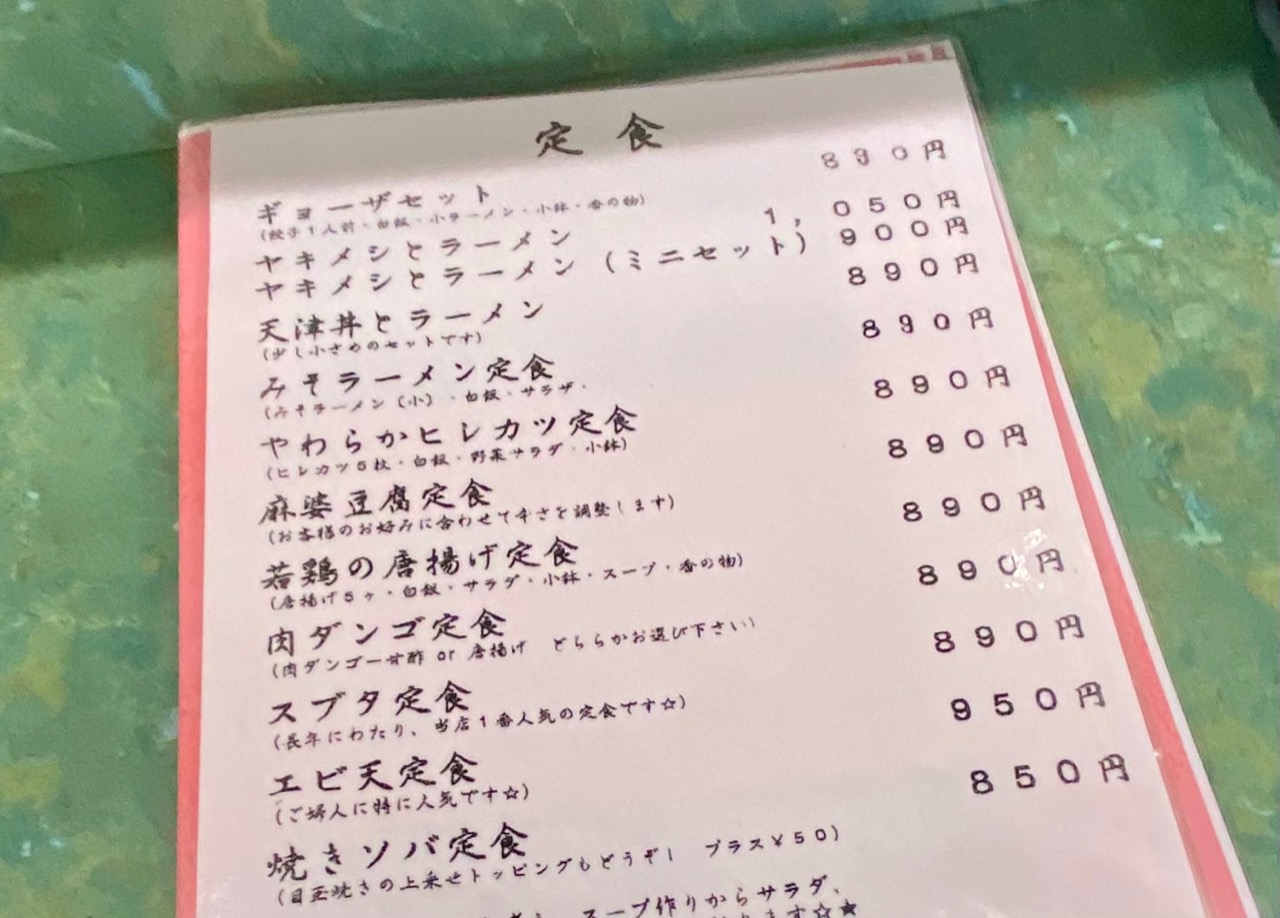 定食
ギョーザセット 890円
(餃子1人前・白飯・小ラーメン・小鉢・香の物)
ヤキメシとラーメン 1,050円
ヤキメシとラーメン(ミニセット) 900円
天津丼とラーメン 890円
(少し小さめのセットです)
みそラーメン定食 890円
(みそラーメン(小)・白飯・サラザ・
やわらかヒレカツ定食 890円
(ヒレカツ5枚・白飯・野菜サラダ・小鉢)
麻婆豆腐定食 890円
(お客様のお好みに合わせて辛さを調整します)
若鶏の唐揚げ定食 890円
(唐揚げ5ヶ・白飯・サラダ・小鉢・スープ・香の物)
肉ダンゴ定食 890円
(肉ダンゴー甘酢 or 唐揚げ どちらかお選び下さい)
スブタ定食 890円
(長年にわたり、当店1番人気の定食です☆)
エビ天定食 950円
(ご婦人に特に人気です☆)
焼きソバ定食 850円
(目玉焼きの上乗せトッピングもどうぞ! プラス¥50)
スープ作りからサラダ、
ます☆★